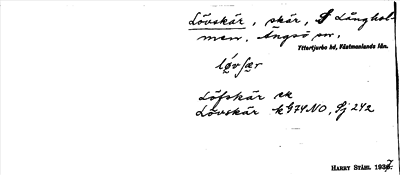 Lövskär, skär, S Långhol-
men. Ängsö sn.
Yttertjurbo hd, Västmanlands län.
løvʃær
Löfskär ek
Lövskär k G74 NO, Sj 242
HARRY STÅHL 1937.